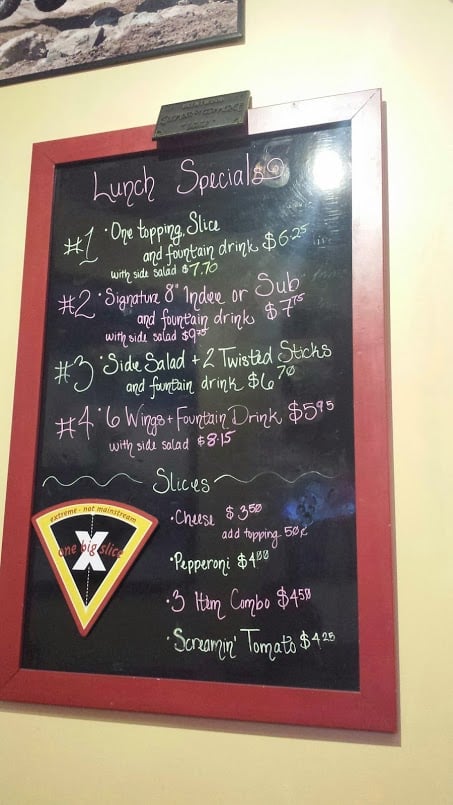 Lunch Specials
#1 • One topping, Slice
and fountain drink $6.25
with side salad $7.70
#2 • Signature 8" Indee or Sub
and fountain drink $7.75
with side salad
#3 • Side Salad + 2 Twisted Sticks
and fountain drink $6.70
#4 • 6 Wings + Fountain Drink $5.95
with side salad $8.15
Slices
extreme - not mainstream
one big slice
X
• Cheese $3.50
add topping 50¢
• Pepperoni $4.00
• 3 Item Combo $4.50
• Screamin' Tomato $4.25